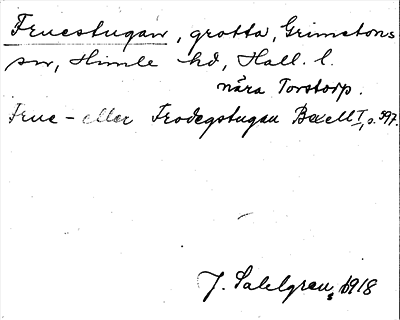 Fruestugan, grotta, Grimetons
sn, Himle hd, Hall. l.
nära Torstorp.
Frue- eller Frodegstugan Bexell I, s. 397.
J. Sahlgren, 1918